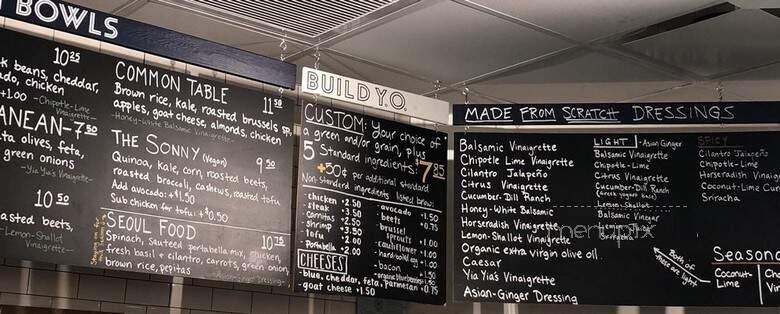 BOWLS
10.25
k beans, cheddar,
ado, chicken
+1.00 -Chipotle-Lime
Vinaigrette-
ANEAN-7.50
ta olives, feta,
green onions
-Yia Yia's Vinaigrette-
10.50
asted beets,
-Lemon-Shallot
Vinaigrette-
COMMON TABLE 11.50
Brown rice, kale, roasted brussels sp,
apples, goat cheese, almonds, chicken
-Honey-White Balsamic Vinaigrette-
THE SONNY (Vegan) 9.50
Quinoa, kale, corn, roasted beets,
roasted broccoli, cashews, roasted tofu
Add avocado: +$1.50
Sub chicken for tofu: +$0.50
SEOUL FOOD 10.75
Spinach, sauteed portabella mix, chicken,
fresh basil + cilantro, carrots, green onion,
brown rice, pepitas
-Asian-Ginger Dressing-
BUILD Y.O.
CUSTOM: Your choice of
a green and/or grain, plus
5 Standard ingredients: $7.85
+50¢ per additional standard
Non-Standard ingredients listed below:
-chicken +2.50
-steak +3.50
-carnitas +2.50
-shrimp +3.50
-tofu +2.00
-Portabella +2.00
-avocado +1.50
-beets +0.75
-brussel sprouts
-cauliflower
-hard-boiled egg +1.00
-bacon +1.50
-organic blueberries
CHEESES
-blue, cheddar, feta, parmesan +0.75
-goat cheese +1.50
MADE FROM SCRATCH DRESSINGS
Balsamic Vinaigrette
Chipotle Lime Vinaigrette
Cilantro Jalapeño
Citrus Vinaigrette
Cucumber-Dill Ranch
Honey-White Balsamic
Horseradish Vinaigrette
Lemon-Shallot Vinaigrette
Organic extra virgin olive oil
Caesar
Yia Yia's Vinaigrette
Asian-Ginger Dressing
LIGHT -Asian Ginger
Balsamic Vinaigrette
Chipotle-Lime
Citrus Vinaigrette
Cucumber-Dill Ranch
(Greek yogurt base)
Lemon-Shallot
Balsamic Vinegar
SPICY
Cilantro Jalapeño
Chipotle-Lime
Horseradish Vinaigrette
Coconut-Lime Cu
Sriracha
Both of
these are light
Seasona
Coconut-
Lime